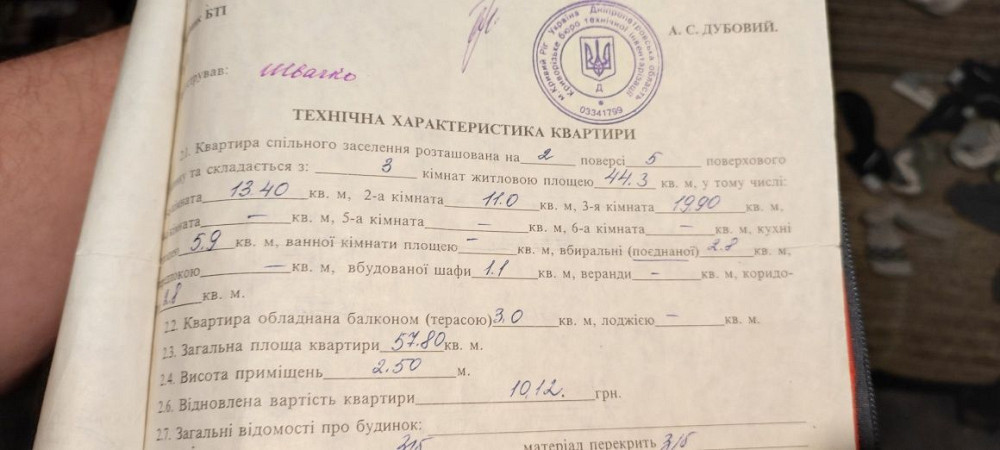 БТІ
А. С. ДУБОВИЙ.
Швачко
Україна Дніпропетровська область м. Кривий Ріг
Криворізьке бюро технічної інвентаризації
Д
03341799
ТЕХНІЧНА ХАРАКТЕРИСТИКА КВАРТИРИ
2.1. Квартира спільного заселення розташована на 2 поверсі 5 поверхового
та складається з: 3 кімнат житловою площею 44.3 кв. м, у тому числі:
13.40 кв. м, 2-а кімната 11.0 кв. м, 3-я кімната 19.90 кв. м,
— кв. м, 5-а кімната — кв. м, 6-а кімната — кв. м, кухні
5.9 кв. м, ванної кімнати площею - кв. м, вбиральні (поєднаної) 2.8 кв. м,
— кв. м, вбудованої шафи 1.1 кв. м, веранди - кв. м, коридо-
кв. м.
2.2. Квартира обладнана балконом (терасою) 3.0 кв. м, лоджією — кв. м.
2.3. Загальна площа квартири 57.80 кв. м.
2.4. Висота приміщень 2.50 м.
2.6. Відновлена вартість квартири 10,12. грн.
2.7. Загальні відомості про будинок:
з/б матеріал перекрить з/б